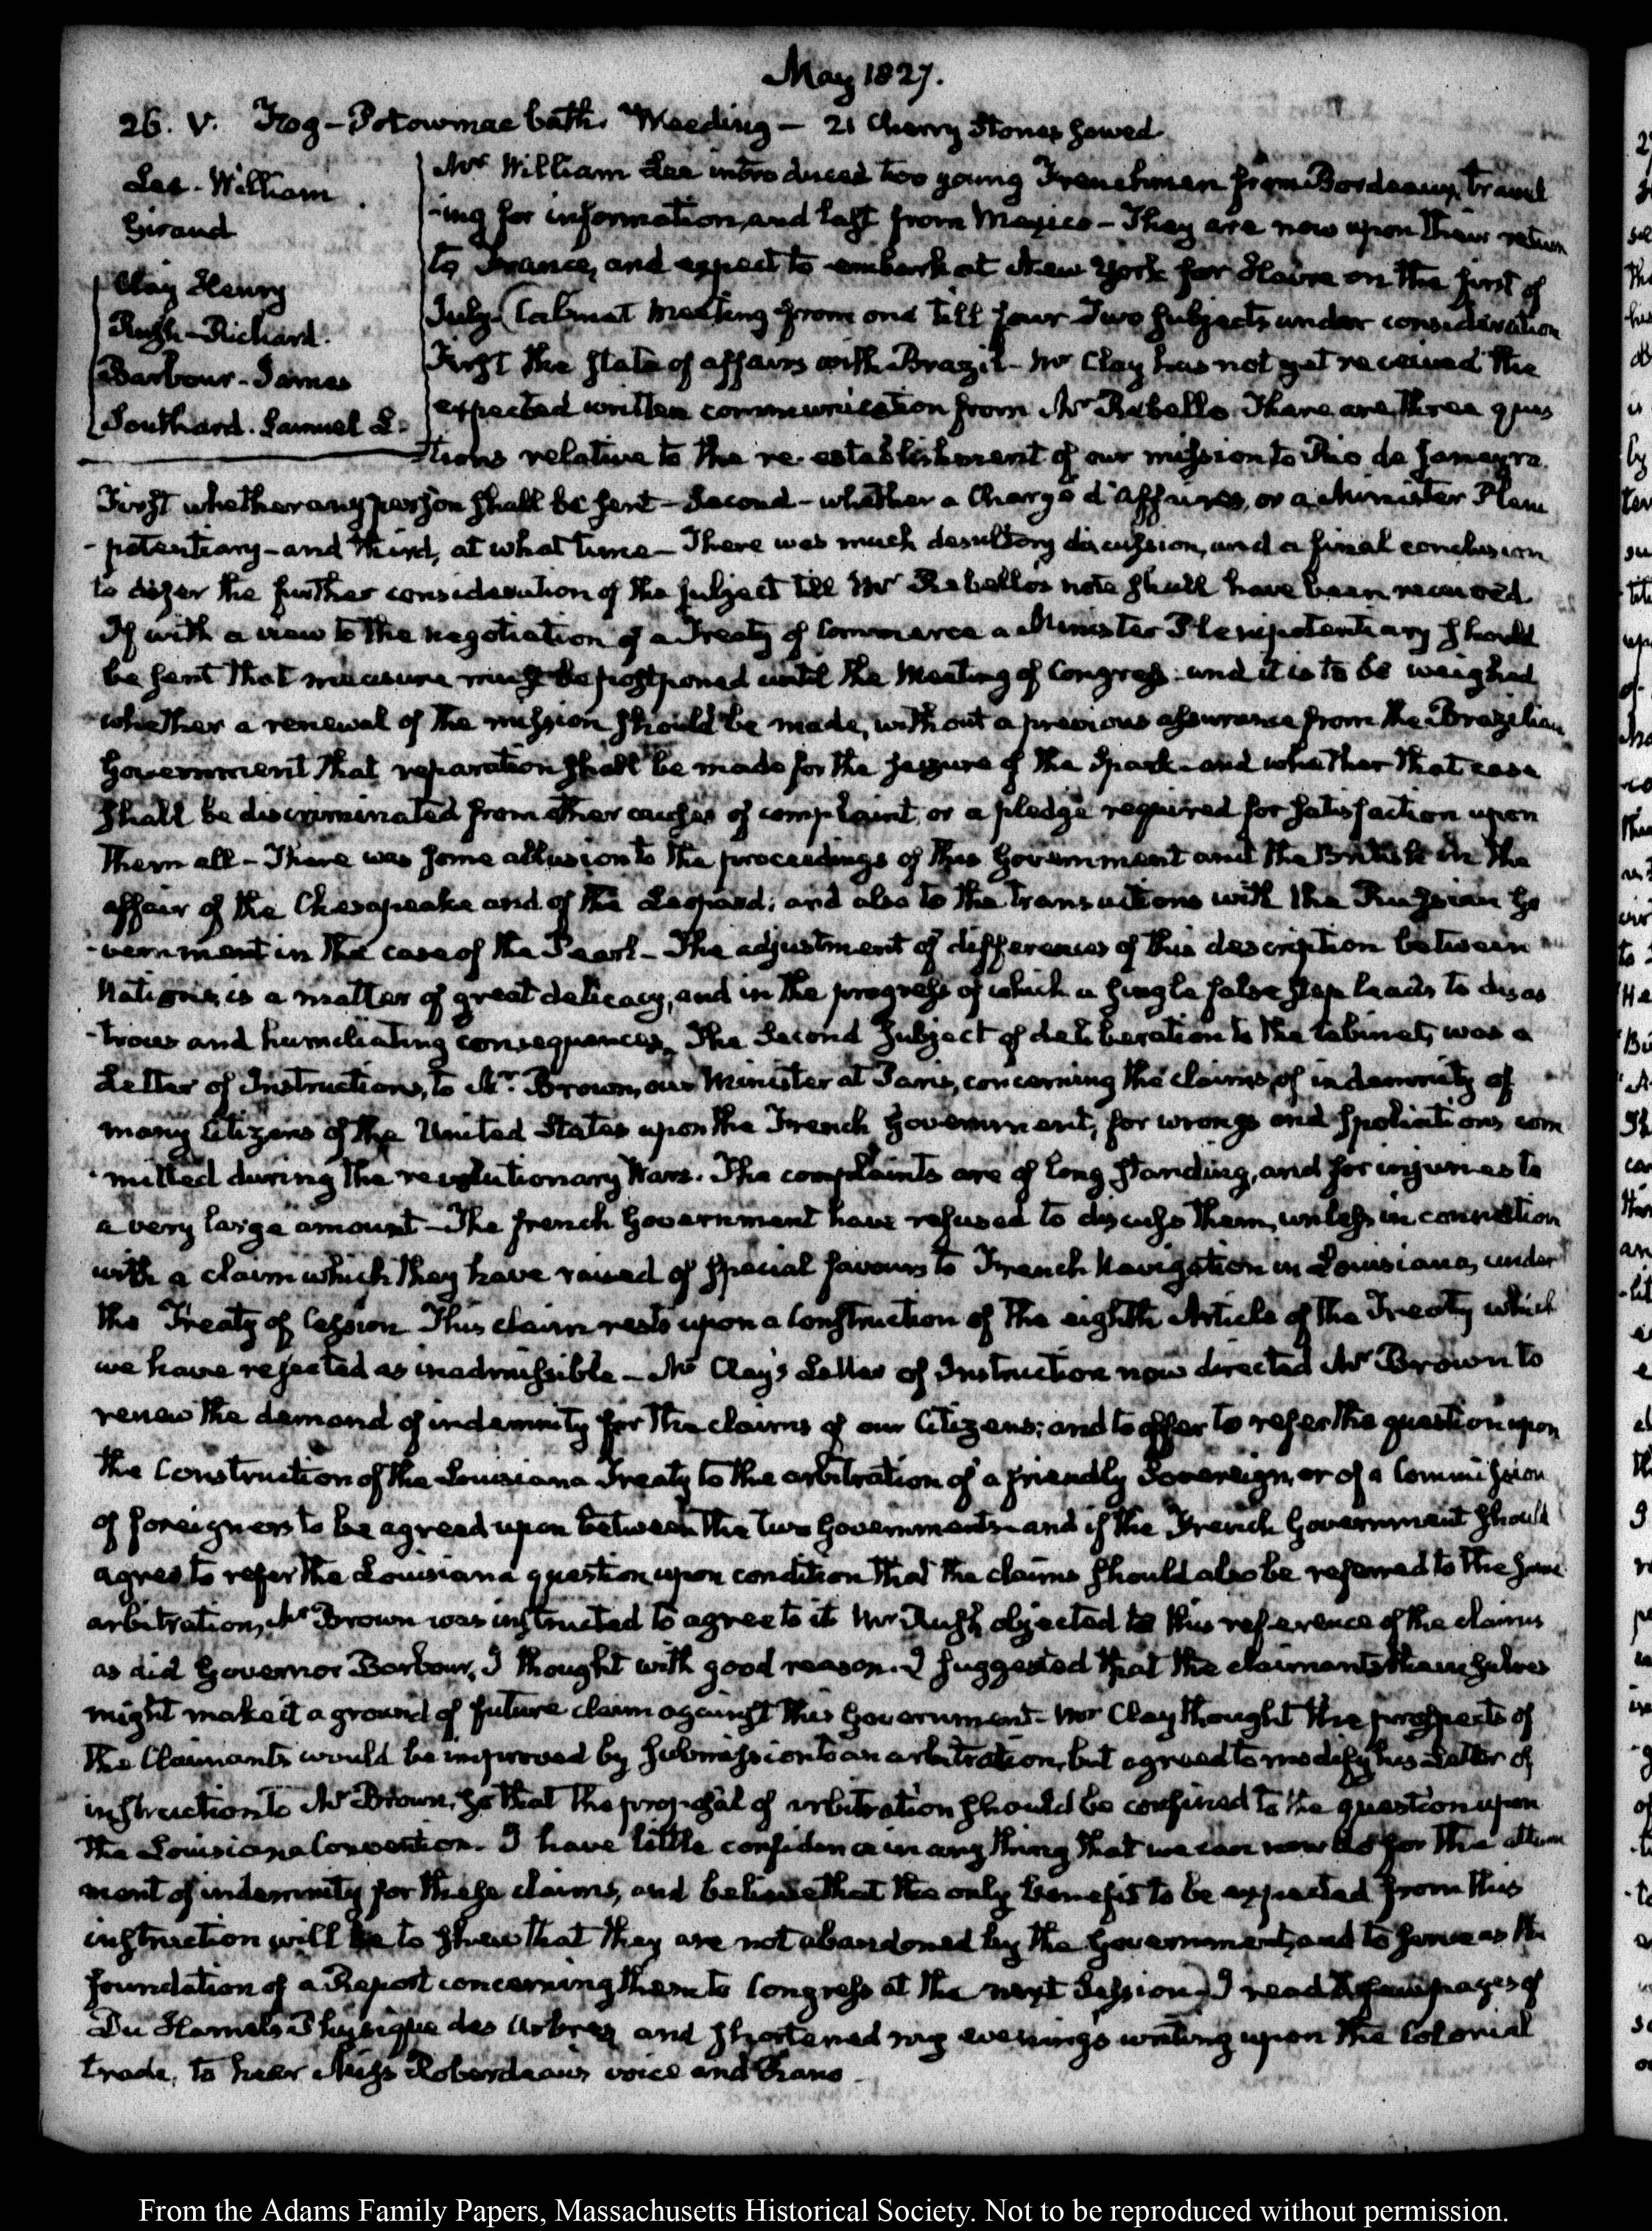 May 1827.
26. V. Fog - Potowmac bath. Weeding - 21 Cherry Stones sowed
Lee - William
Giraud
Clay Henry
Rush - Richard.
Barbour - James
Southard. Samuel L.
Mr William Lee introduced two young Frenchmen from Bordeaux, travel
-ing for information, and last from Mexico - They are now upon their return
to France, and expect to embark at New York for Havre on the first of
July. Cabinet Meeting from one till four Two subjects under consideration
First the state of affairs with Brazil - Mr Clay has not yet received the
expected written communication from Mr Rebello. There are three ques
tions relative to the re-establishment of our mission to Rio de Janeyro.
First whether any person shall be sent - Second - whether a Chargé d'Affaires, or a Minister Pleni
-potentiary - and third, at what time - There was much desultory discussion, and a final conclusion
to defer the further consideration of the subject till Mr Rebello's note shall have been received
If with a view to the negotiation of a Treaty of Commerce a Minister Plenipotentiary should
be sent that measure must be postponed until the Meeting of Congress: and it is to be weighed
whether a renewal of the mission should be made, without a previous assurance from the Brazilian
Government that reparation shall be made for the seizure of the Spark - and whether that case
shall be discriminated from other causes of complaint, or a pledge required for satisfaction upon
them all - There was some allusion to the proceedings of this Government and the British in the
affair of the Chesapeake and of the Leopard; and also to the transactions with the Russian Go
-vernment in the case of the Pearl - The adjustment of differences of this description between
Nations, is a matter of great delicacy, and in the progress of which a single false step leads to disas
-trous and humiliating consequences. The Second subject of deliberation to the Cabinet, was a
Letter of Instructions, to Mr. Brown, our Minister at Paris, concerning the claims, of indemnity of
many Citizens of the United States upon the French Government, for wrongs and spoliations com
-mitted during the revolutionary Wars. The complaints are of long standing, and for injuries to
a very large amount - The french Government have refused to discuss them, unless in connection
with a claim which they have raised of special favours to French Navigation in Louisiana, under
the Treaty of Cession. This claim rests upon a construction of the eighth Article of the Treaty which
we have rejected as inadmissible - Mr Clay's Letter of Instruction now directed Mr Brown to
renew the demand of indemnity for the claims of our Citizens; and to offer to refer the question upon
the Construction of the Louisiana Treaty to the arbitration of a friendly Sovereign, or of a Commission
of foreigners to be agreed upon between the two Governments - and if the French Government should
agree to refer the Louisiana question, upon condition that the claims should also be referred to the same
arbitration, Mr Brown was instructed to agree to it Mr Rush objected to this reference of the claims
as did Governor Barbour, I thought with good reason. I suggested that the claimants themselves
might make it a ground of future claim against this Government. Mr Clay thought the prospects of
the Claimants would be improved by submission to an arbitration, but agreed to modify his Letter of
instruction to Mr Brown, so that the proposal of arbitration should be confined to the question upon
the Louisiana Convention. I have little confidence in any thing that we can now do for the attain
ment of indemnity for these claims, and believe that the only benefit to be expected from this
instruction will be to shew that they are not abandoned by the Government, and to serve as the
foundation of a Report concerning them to Congress at the next Session. I read a few pages of
Du Hamel's Physique des Arbres and shortened my evening's writing upon the Colonial
trade, to hear Miss Roberdeau's voice and Piano -
From the Adams Family Papers, Massachusetts Historical Society. Not to be reproduced without permission.